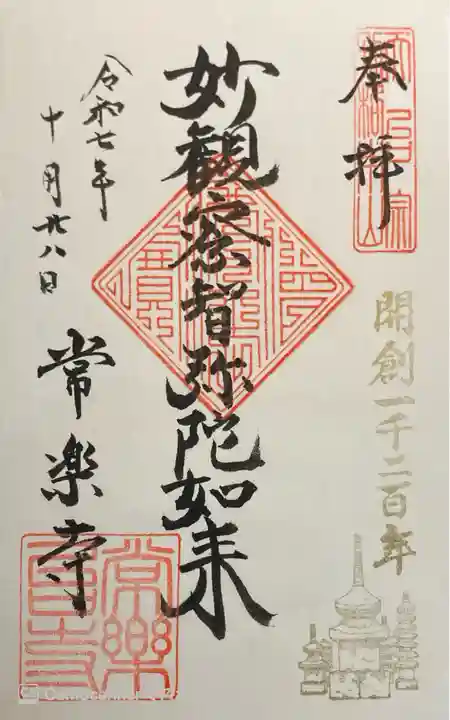 奉拝
開創一千二百年
妙観察智弥陀如来
令和七年
十月廿八日
常楽寺
常樂寺